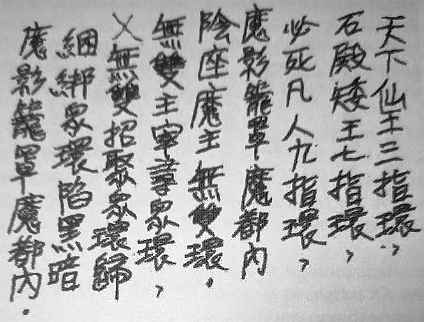 天下仙王三指環，
石殿矮王七指環，
必死凡人九指環，
魔影籠罩魔都內
陰座魔主無雙環．
無雙主宰尋眾環，
無雙招聚眾環歸
綑綁眾環陷黑暗
魔影籠罩魔都內．